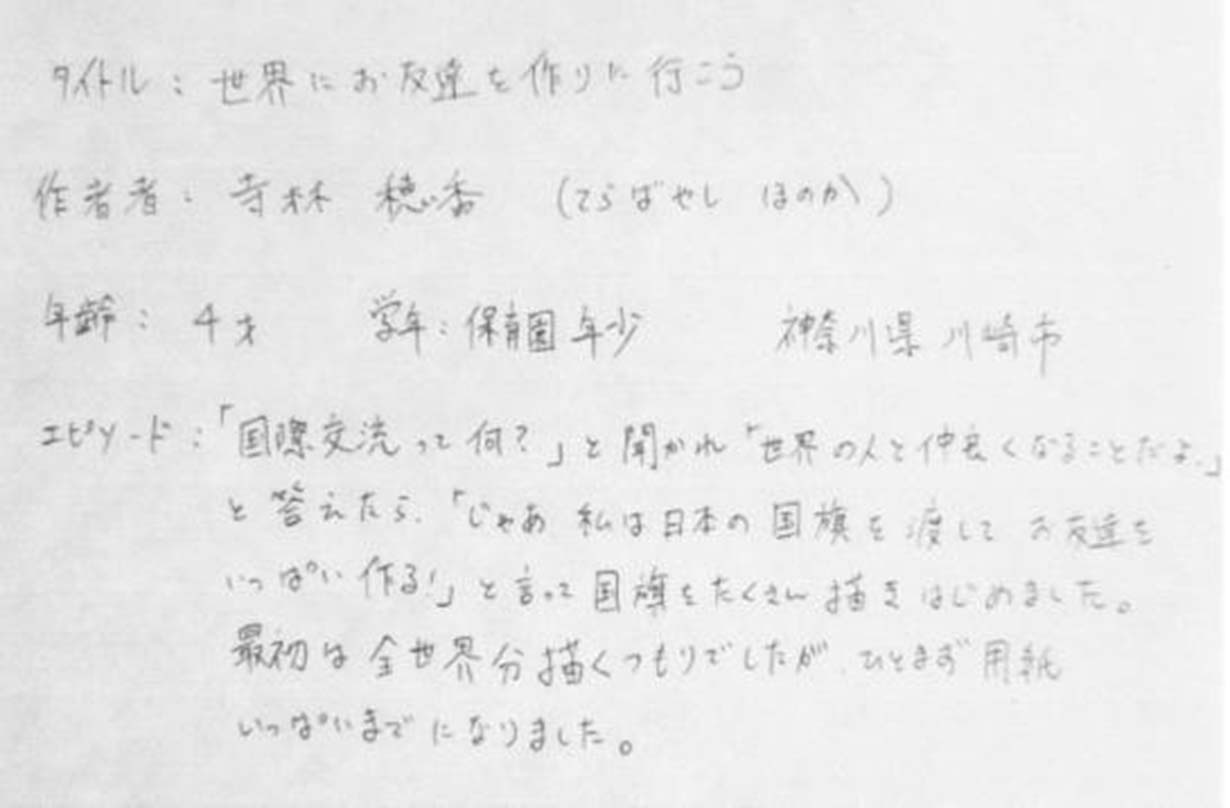 タイトル：世界にお友達を作りに行こう
作者者：寺林 穂香 （てらばやし ほのか）
年齢：4才 学年：保育園年少 神奈川県川崎市
エピソード：「国際交流って何？」と聞かれ「世界の人と仲良くなることだよ。」
と答えたら、「じゃあ 私は日本の国旗を渡して お友達を
いっぱい作る！」と言って国旗をたくさん描きはじめました。
最初は全世界分描くつもりでしたが、ひとまず用紙
いっぱいまでになりました。